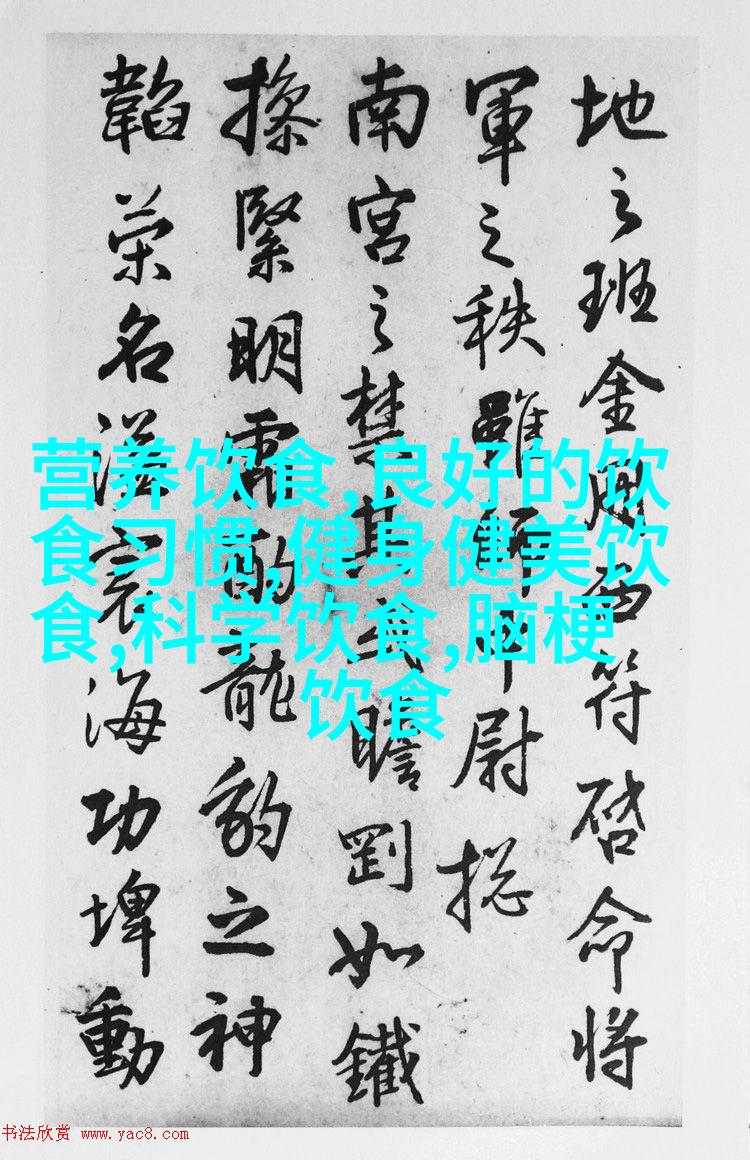 地之班金符啓命将
軍之秩雖師中尉揔
南宮之禁其瞻剛如鐵
操緊明龍豹之神
韜榮名溢寰海功埤動
营养饮食,良好的饮
食习惯,健身健美饮
食,科学饮食,脑梗
饮食
书法欣赏 www.yac8.com